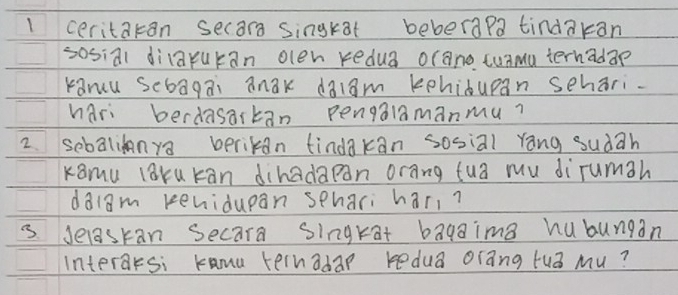 1 ceritakan secara singkat beberapa tindakan
sosial dilakukan oleh kedua orang tuamu terhadap
kamu sebagai anak dalam kehidupan sehari-
hari berdasarkan pengalamanmu?
2. sebaliknya berikan tindakan sosial yang sudah
kamu lakukan dihadapan orang tua mu dirumah
dalam kehidupan sehari hari?
3. Jelaskan secara singkat bagaima hubungan
interaksi kamu terhadap kedua orang tua mu?